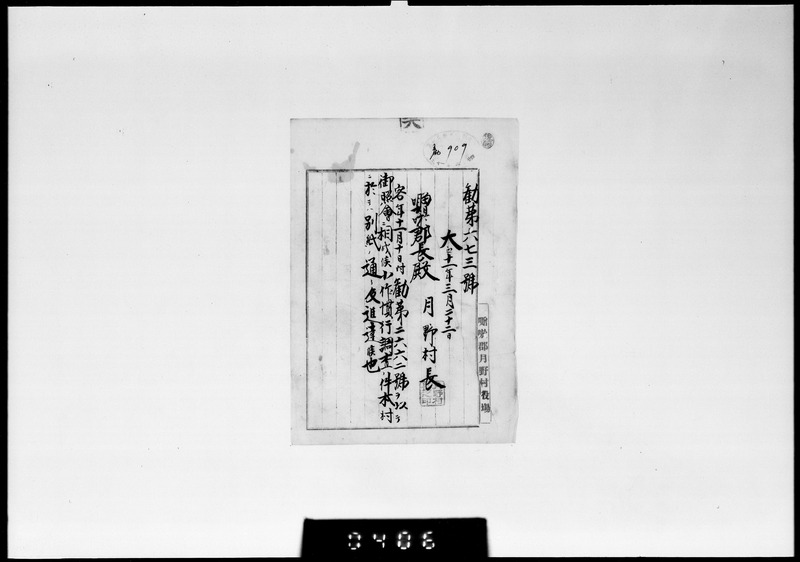 勧第六七三號
大正十一年三月二十二日
囎唹郡長殿
月野村長
客年十一月十日付勧第二六六二號ヲ以テ
御照會相成候小作慣行調査ノ件本村
ニ於ケル別紙ノ通ニ及進達候也
囎唹郡月野村役場
909
0406